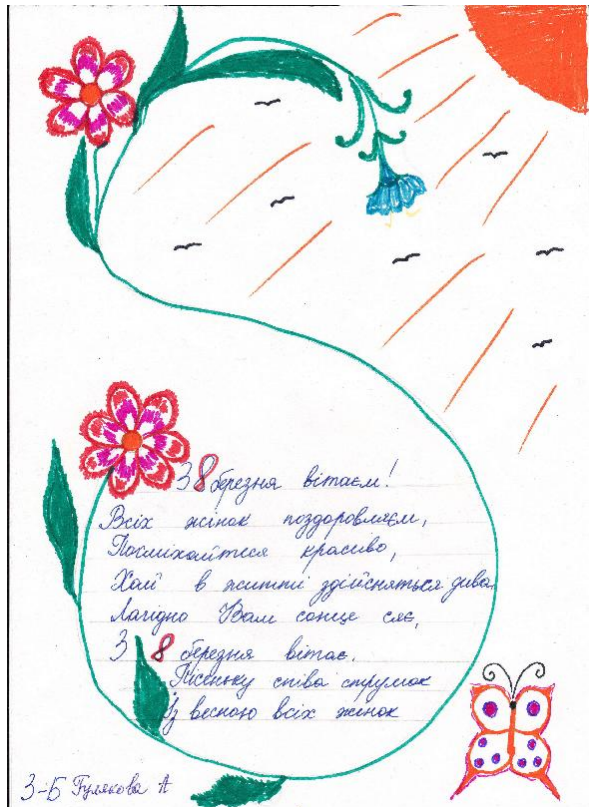 З 8 березня вітаєм!
Всіх жінок поздоровляєм,
Посміхайтеся красиво,
Хай в житті здійсняться дива.
Лагідно Вам сонце сяє,
З 8 березня вітає.
Пісеньку співа струмок
Із весною всіх жінок
3-Б Гулякова А